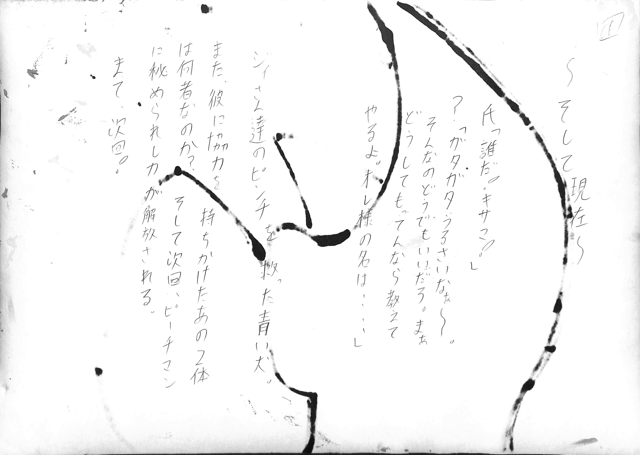 1
～そして現在～
氏「誰だ。キサマ。」
?「ガタガタうるさいなぁ～。
そんなのどうでもいいだろ。まぁ
どうしてもってんなら教えて
やるよ。オレ様の名は・・・・」
ジイさん達のピンチを救った青い犬。
また、彼に協力を持ちかけたあの2体
は何者なのか？そして次回、ピーチマン
に秘められし力が解放される。
まて、次回。